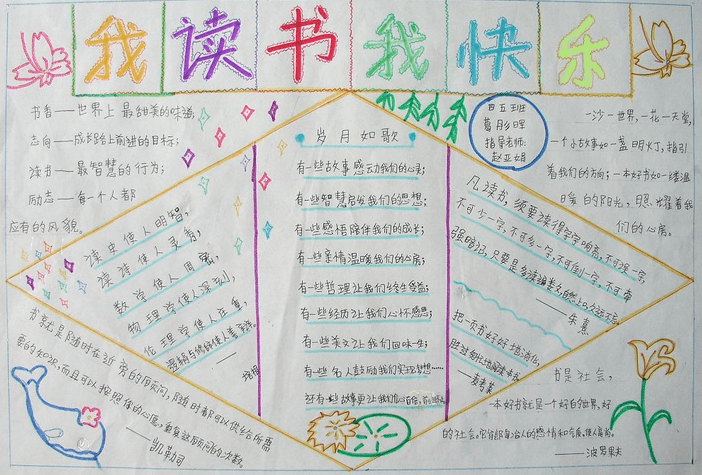 我读书我快乐
书香——世界上最甜美的味道,
志向——成长路上前进的目标;
读书——最智慧的行为;
励志——每一个人都
应有的风貌。
四五班
葛彤晖
指导老师:
赵亚娟
一沙一世界,一花一天堂,
一个小故事如一盏明灯,指引
着我们的方向;一本好书如一缕温
暖的阳光,照耀着我
们的心房。
读史使人明智,
读诗使人灵秀,
数学使人周密,
物理学使人深刻,
伦理学使人庄重,
逻辑与修辞使人善辩。
——培根
岁月如歌
有一些故事感动我们的心灵;
有一些智慧启发我们的思想;
有一些感悟陪伴我们的成长;
有一些亲情温暖我们的心房;
有一些哲理让我们终生受益;
有一些经历让我们心怀感恩;
有一些美文让我们回味一生;
有一些名人鼓励我们实现梦想……
还有一些故事更让我们
凡读书,须要读得字字响亮,不可误一字,
不可少一字,不可多一字,不可倒一字,不可牵
强暗记,只要是多读遍数,自然上口,久远不忘。
——朱熹
把一页书好好地消化,
胜过匆忙地阅读一本书
——麦考莱
书就是随时在近旁的顾问,随时都可以供给你所需
要的知识,而且可以按照你的心愿,重复这顾问的次数。
——凯勒司
书是社会,
一本好书就是一个好的世界,好
的社会。它能陶冶人的感情和气质,使人高尚。
——波罗果夫